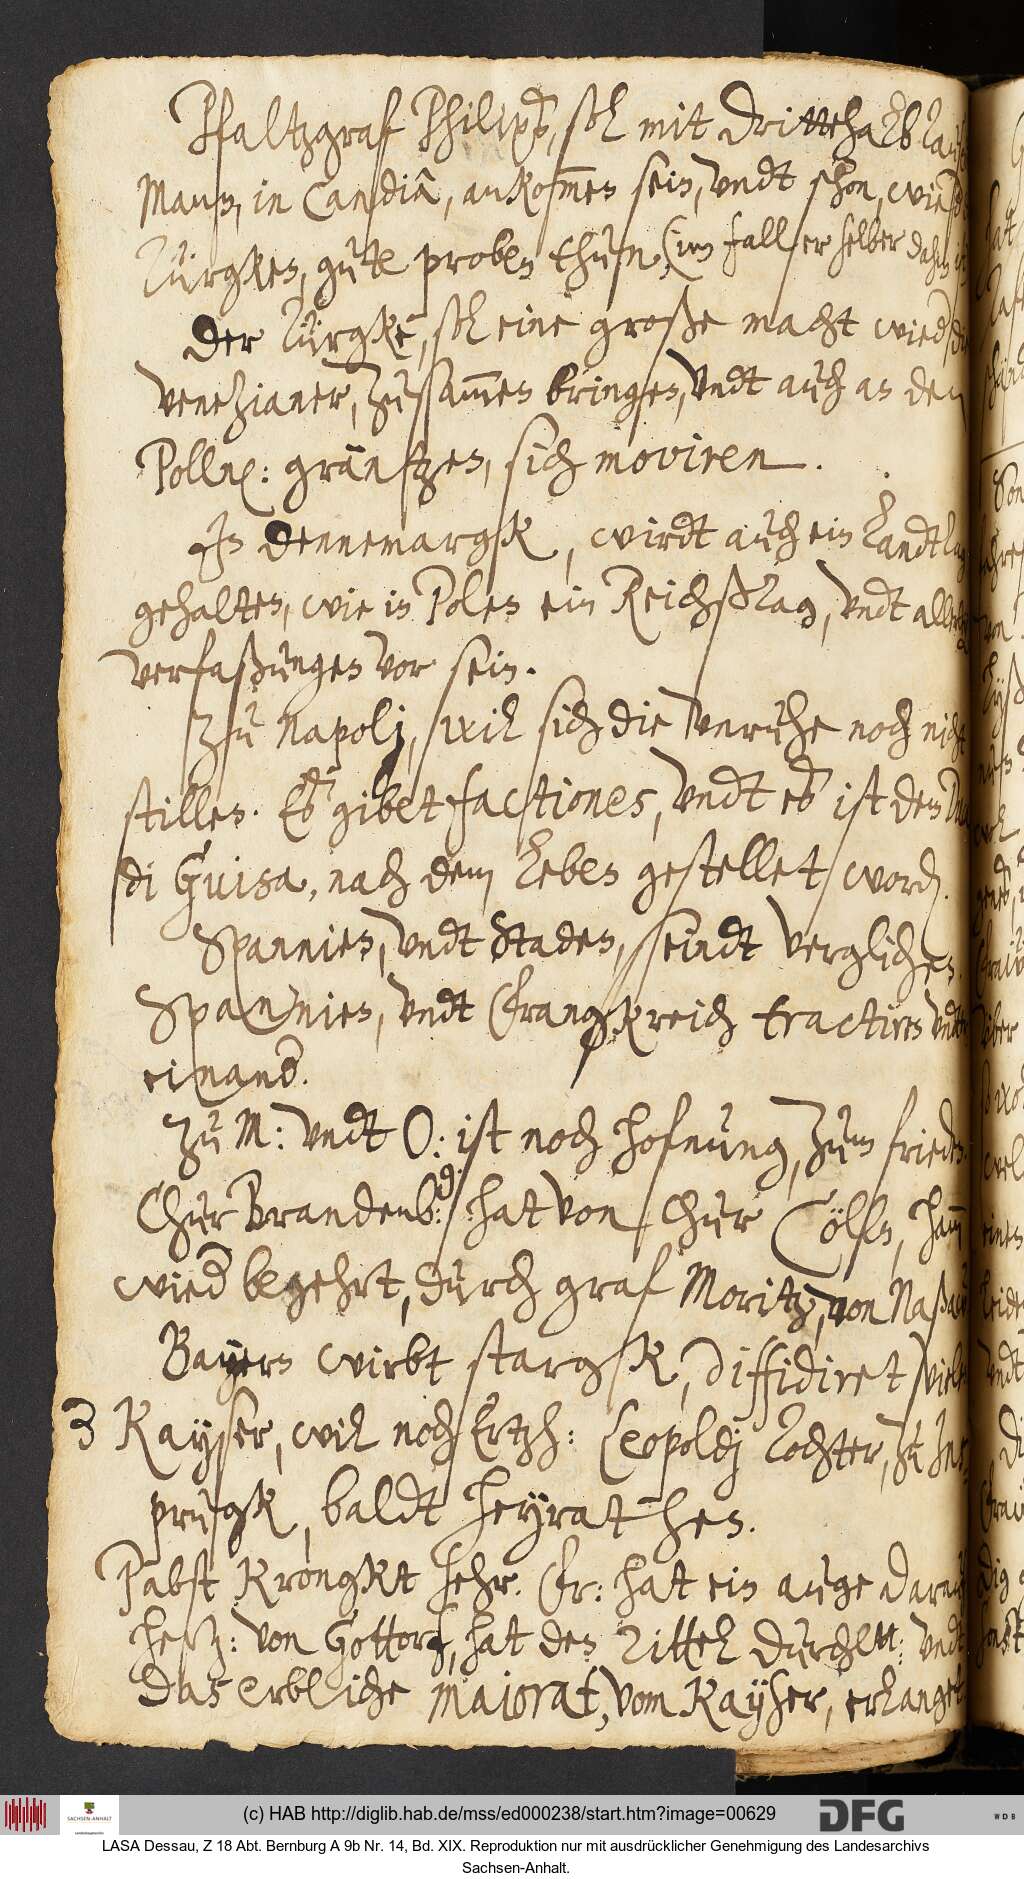 Pfaltzgraf Philips, sol mit dritthalb
Mann, in Candia, ankom̅en sein, undt schon, wied
Türgken, gute proben thun, (im fall er selber dahin
Der Türgke, sol eine große macht wied die
Venezianer, zusam̅en bringen, undt auch an den
Polln: gräntzen, sich moviren.
In Dennemargk, wirdt auch ein Landtag
gehalten, wie in Polen ein Reichßtag, undt
verfaßungen vor sein.
Zu Napolj, wil sich die unruhe noch nicht
stillen. Eß gibet factiones, undt eß ist dem
di Guisa, nach dem leben gestellet word.
Spannien, undt Staden, seindt verglichen.
Spannien, undt Frangkreich tractiren
einand.
Zu M: undt O: ist noch hofnung, zum frieden.
Chur Brandenb:g. hat von Chur Cölln, Ham̅
wied begehrt, durch graf Moritz, von Naßaw
Bayern wirbt stargk, diffidiret
3 Kayser, wil noch Ertzh: Leopoldj Tochter, zu Ins-
prugk, baldt heyrathen.
Pabst krongkt sehr. Fr: hat ein auge darauf
Hertz: von Gottorf, hat den Tittel Durchltt: undt
das erbliche majorat, vom Kayser, erlanget
(c) HAB http://diglib.hab.de/mss/ed000238/start.htm?image=00629
SACHSEN-ANHALT
DFG
WDB
LASA Dessau, Z 18 Abt. Bernburg A 9b Nr. 14, Bd. XIX. Reproduktion nur mit ausdrücklicher Genehmigung des Landesarchivs
Sachsen-Anhalt.